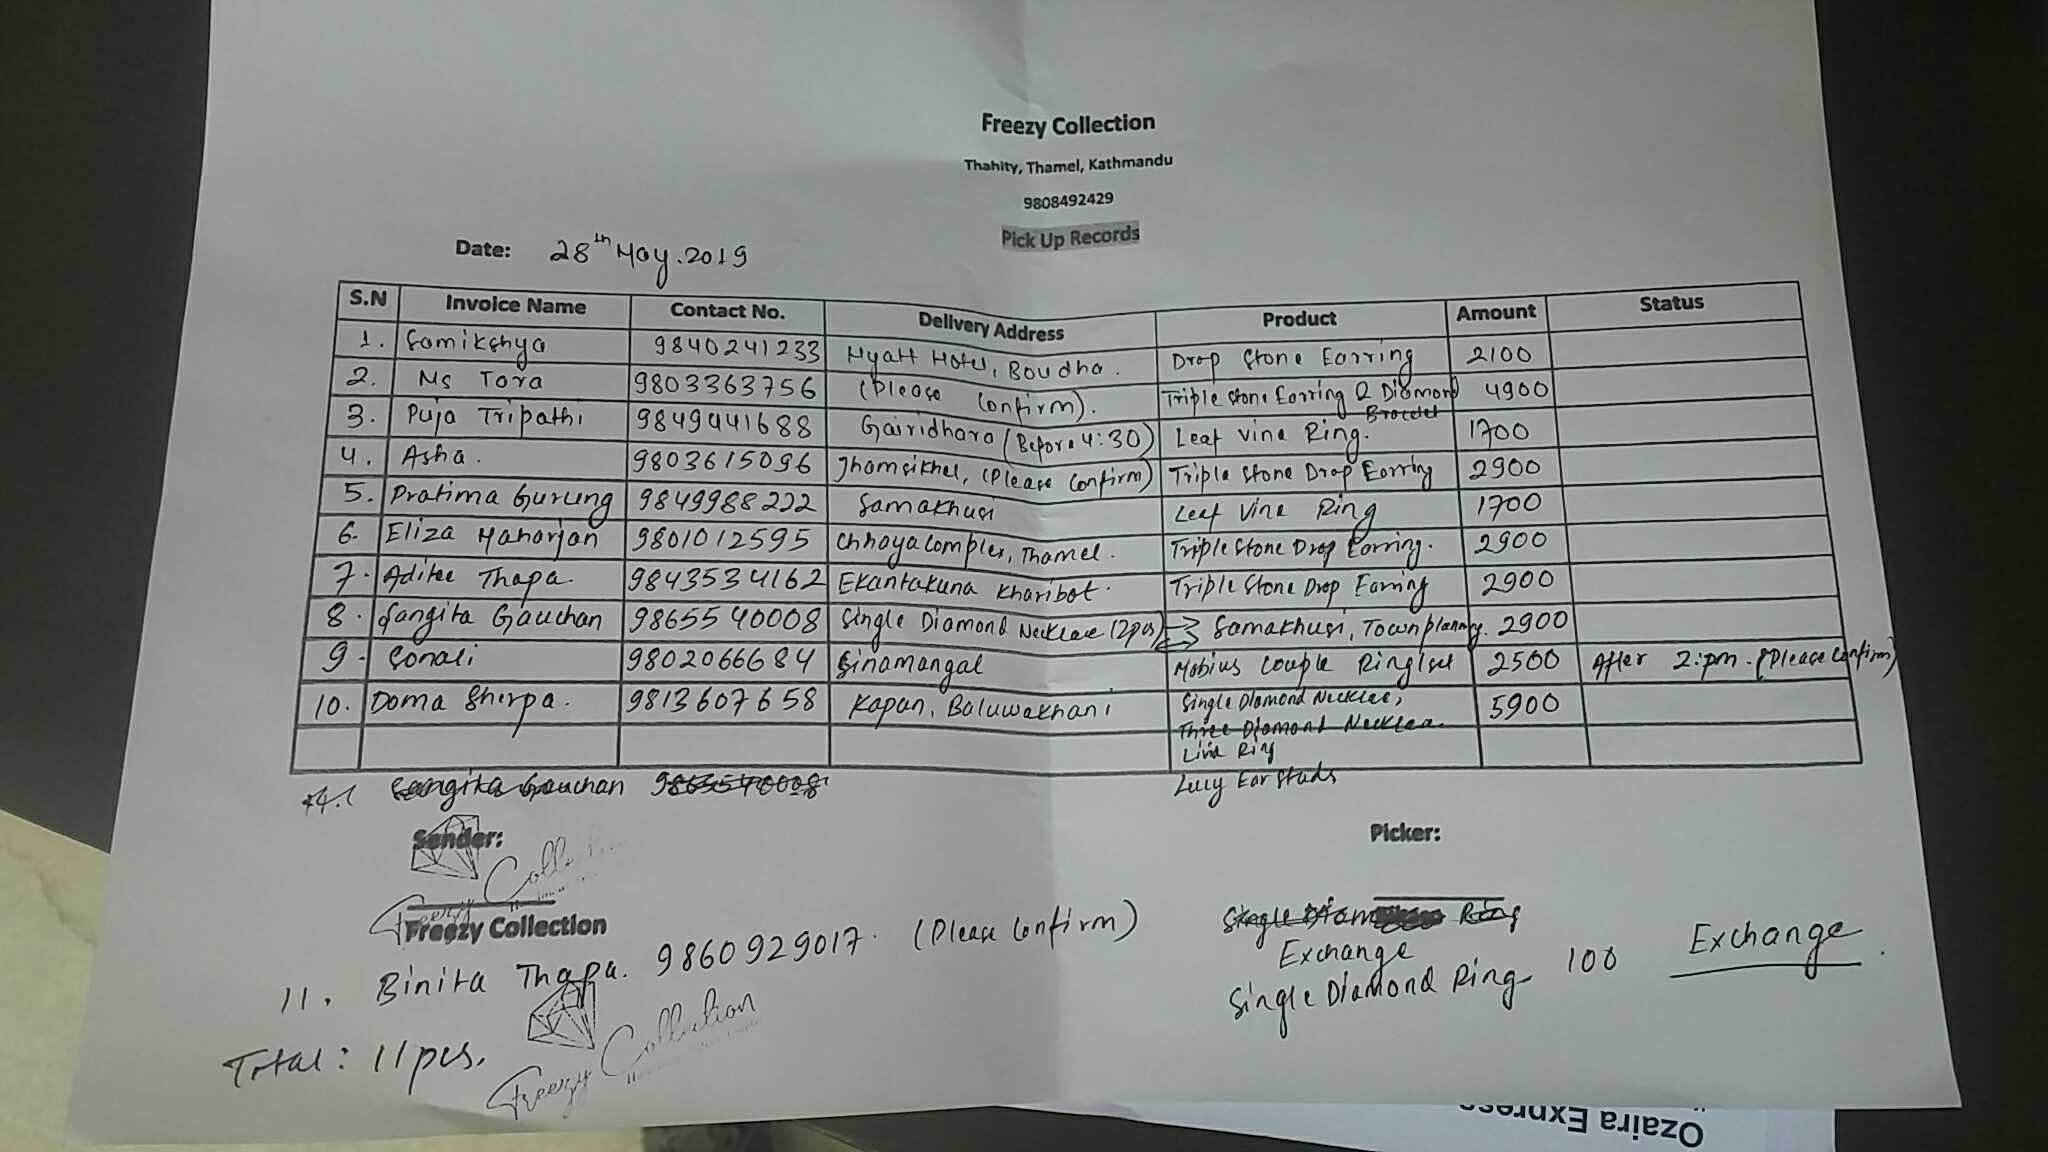 Freezy Collection
Thahity, Thamel, Kathmandu
9808492429
Pick Up Records
Date: 28th May. 2019
S.N Invoice Name Contact No. Delivery Address Product Amount Status
1. Samikshya 9840241233 Hyatt Hotel, Boudha. Drop Stone Earring 2100
2. Ms Tara 9803363756 (Please Confirm). Triple Stone Earring & Diamond Bracelet 4900
3. Puja Tripathi 9849441688 Gairidhara (Before 4:30) Leaf Vine Ring. 1700
4. Asha. 9803615096 Jhamsikhel, (Please Confirm) Triple Stone Drop Earring 2900
5. Pratima Gurung 9849988222 Samakhusi Leaf Vine Ring 1700
6. Eliza Maharjan 9801012595 Chhaya Complex, Thamel. Triple Stone Drop Earring. 2900
7. Aditee Thapa 9843534162 Ekantakuna Kharibot. Triple Stone Drop Earring 2900
8. Sangita Gauchan 9865540008 Single Diamond Necklace (2pcs) Samakhusi, Townplanning. 2900
9. Sonali 9802066684 Sinamangal Mobius Couple Ring 1set 2500 After 2:pm. (Please Confirm)
10. Doma Sherpa. 9813607658 Kapan, Baluwakhani Single Diamond Necklace, 5900
Three Diamond Necklace
Livia Ring
Lucy Ear Studs
Sangita Gauchan 9865540008
Sender: Picker:
Freezy Collection
Freezy Collection
Single Ring
Exchange
11. Binita Thapa. 9860929017. (Please Confirm) Single Diamond Ring 100 Exchange.
Total: 11 pcs.
Freezy Collection
Ozaira Express